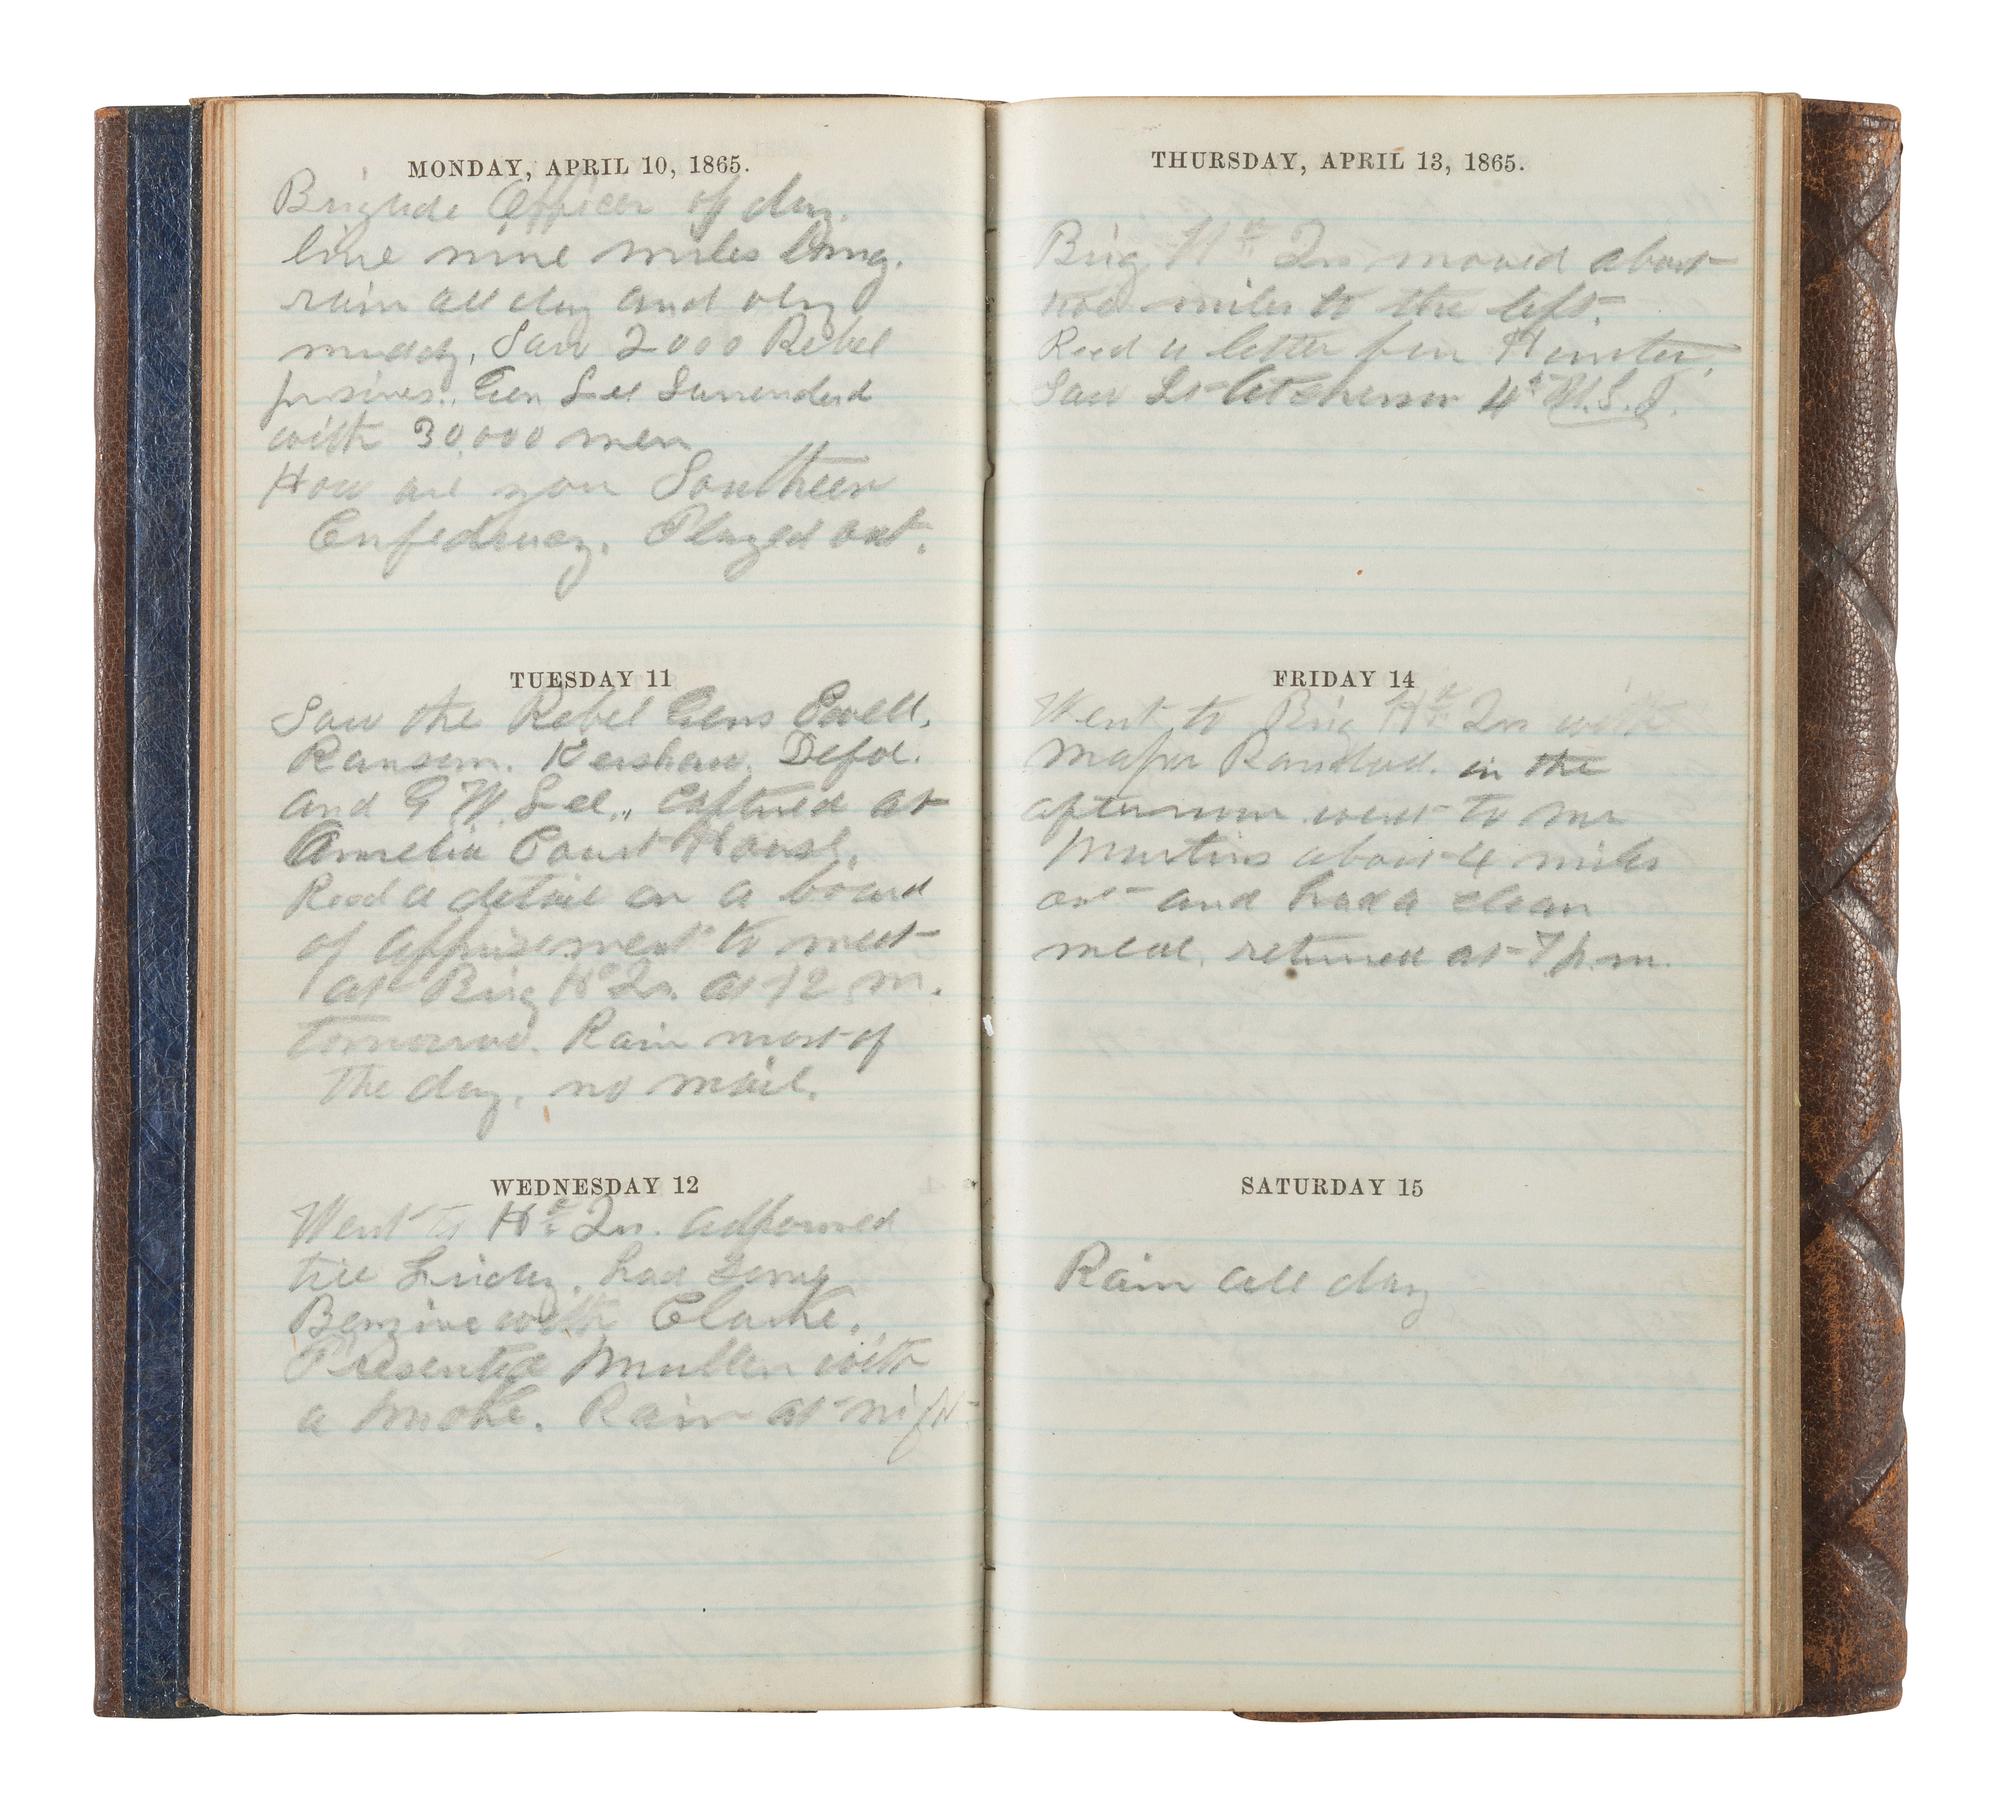 MONDAY, APRIL 10, 1865.
Brigade Officer of day.
line nine miles long.
rain all day and very
muddy, Saw 2000 Rebel
prisiners. Gen Lee Surrenderd
with 30,000 men
How are you Southern
Confedracy. Played out.
TUESDAY 11
Saw the Rebel Gens Ewell,
Ransom. Kershaw.
and G W. Lee., Captured at
Amelia Court House.
Recd a detail on a board
of apprisement to meet
at Brig Hd Qrs. at 12 m.
tomorrow. Rain most of
the day, no mail.
WEDNESDAY 12
Went to Hd Qrs. adjourned
till Friday. had some
Benzine with Clarke.
Presented Mullen with
a smoke. Rain at night
THURSDAY, APRIL 13, 1865.
Brig Hd Qrs moved about
two miles to the left.
Recd a letter from Hunter.
Saw Lt 4th U.S.I.
FRIDAY 14
Went to Brig Hd Qrs with
Major Randall. in the
afternoon went to Mr
Martins about 4 miles
out and had a clean
meal. returned at 7 p.m.
SATURDAY 15
Rain all day